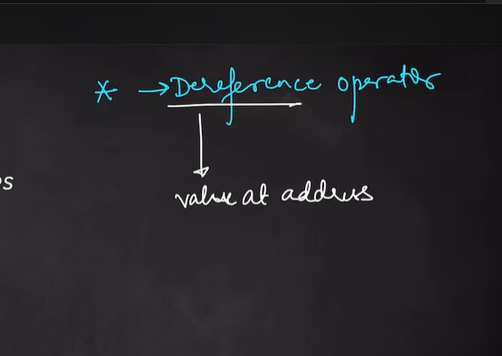 * → Dereference operator
value at address
s